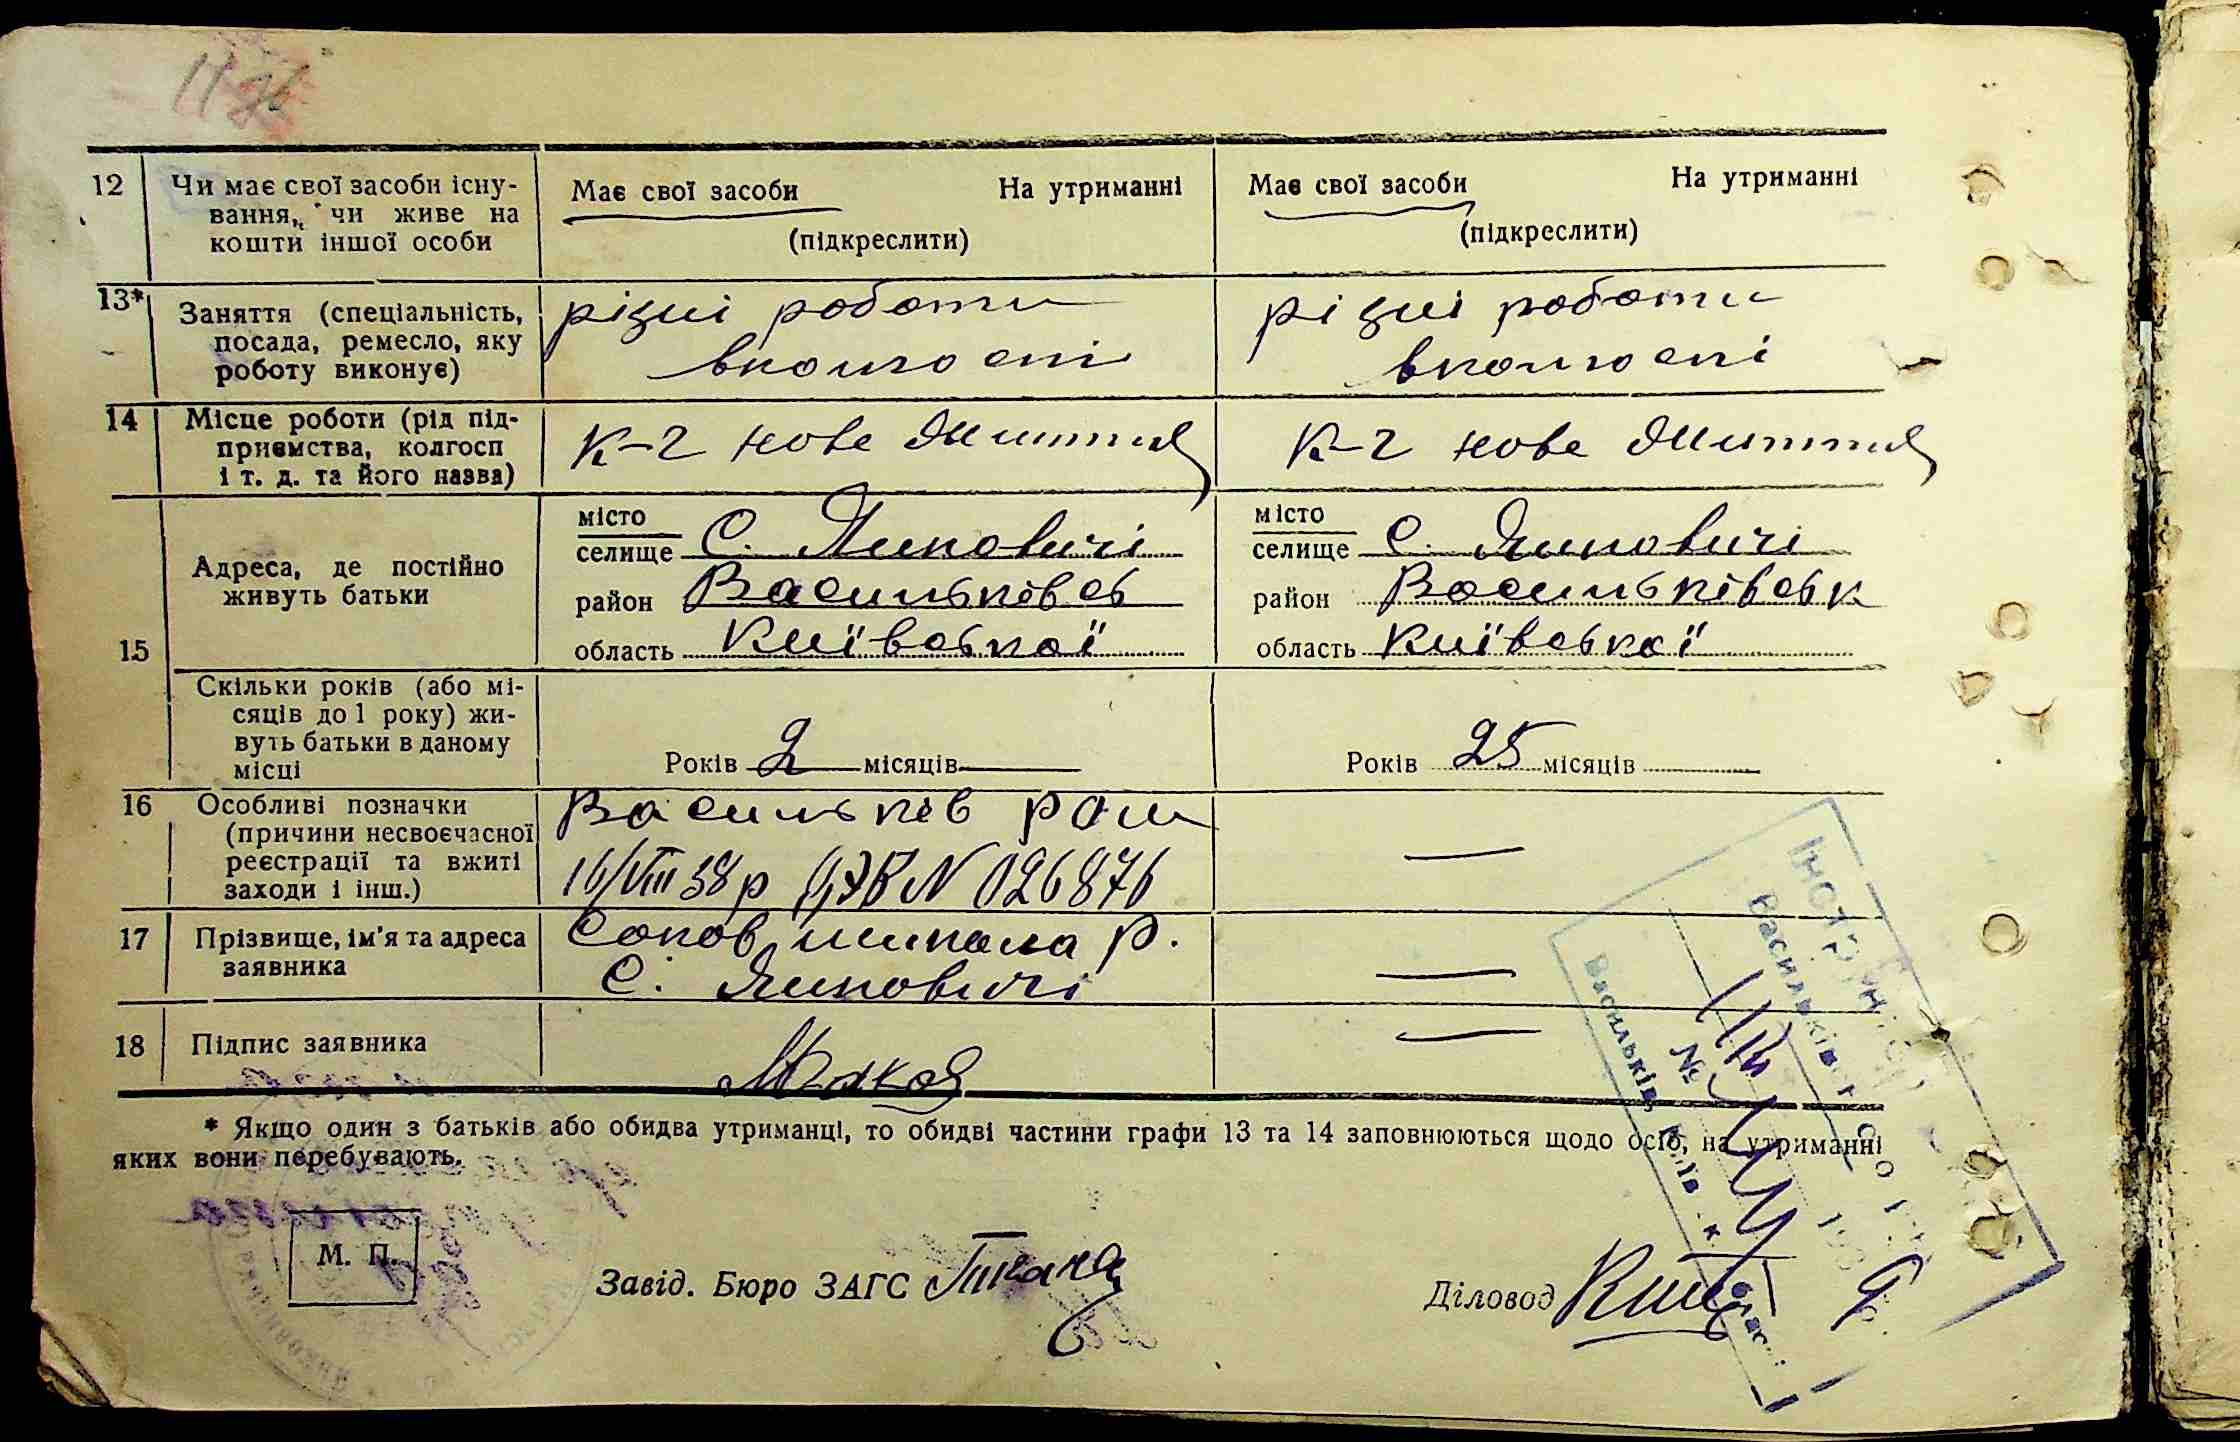 12 Чи має свої засоби існу-
вання, чи живе на
кошти іншої особи
Має свої засоби На утриманні
(підкреслити)
Має свої засоби На утриманні
(підкреслити)
13* Заняття (спеціальність,
посада, ремесло, яку
роботу виконує)
різні роботи
в колгоспі
різні роботи
в колгоспі
14 Місце роботи (рід під-
приємства, колгосп
і т. д. та його назва)
К-г нове Життя
К-г нове Життя
15 Адреса, де постійно
живуть батьки
місто
селище С. Липовичі
район Васильківсь
область Київської
місто
селище С. Липовичі
район Васильківськ
область Київської
Скільки років (або мі-
сяців до 1 року) жи-
вуть батьки в даному
місці
Років 2 місяців
Років 25 місяців
16 Особливі позначки
(причини несвоєчасної
реєстрації та вжиті
заходи і інш.)
Васильків
16/VIII 38 р N 026876
17 Прізвище, ім'я та адреса
заявника
р.
С.
18 Підпис заявника
* Якщо один з батьків або обидва утриманці, то обидві частини графи 13 та 14 заповнюються щодо осіб, на утриманні
яких вони перебувають.
М. П.
Завід. Бюро ЗАГС
Діловод
№